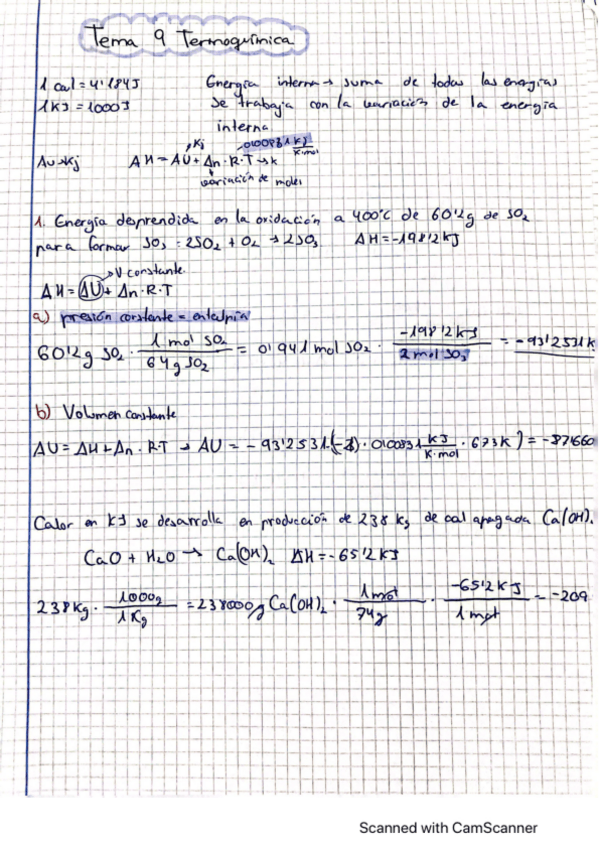 Tema 9 Termoquímica
1 cal = 4'184J Energía interna → suma de todas las energías
1KJ = 1000J Se trabaja con la variación de la energía
interna
KJ 0'00831 KJ/K·mol
ΔU→KJ ΔH = ΔU + Δn·R·T → K
variación de moles
1. Energía desprendida en la oxidación a 400°C de 60'2g de SO₂
para formar SO₃: 2SO₂ + O₂ → 2SO₃ ΔH = -198'2 KJ
V constante
ΔH = ΔU + Δn·R·T
a) presión constante = entalpía
60'2g SO₂ · 1 mol SO₂ / 64g SO₂ = 0'941 mol SO₂ · -198'2 KJ / 2 mol SO₃ = -93'2531K
b) Volumen constante
ΔU = ΔH + Δn·RT → ΔU = -93'2531 · 0'00831 KJ/K·mol · 673K) = -87'660
Calor en KJ se desarrolla en producción de 238 Kg de cal apagada Ca(OH)₂
CaO + H₂O → Ca(OH)₂ ΔH = -65'2 KJ
238Kg · 1000g / 1Kg = 238000g Ca(OH)₂ · 1mol / 74g · -65'2 KJ / 1 mol = -209
Scanned with CamScanner